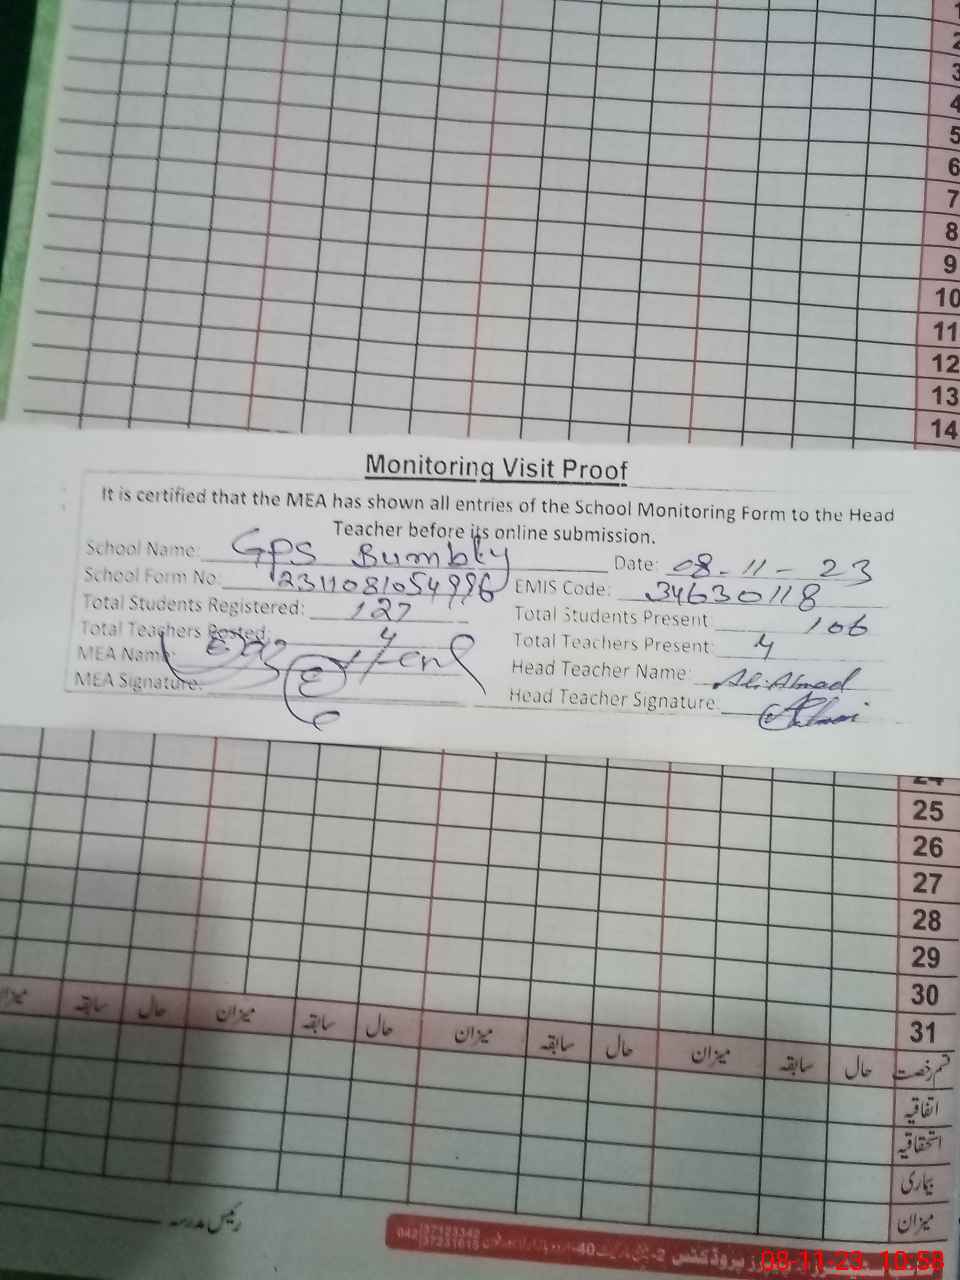 1
2
3
4
5
6
7
8
9
10
11
12
13
14
Monitoring Visit Proof
It is certified that the MEA has shown all entries of the School Monitoring Form to the Head
Teacher before its online submission.
School Name: GPS Bumbly Date: 08-11-23
School Form No: 2311081054996 EMIS Code: 34630118
Total Students Registered: 127 Total Students Present 106
Total Teachers Posted: 4 Total Teachers Present: 4
MEA Name: Head Teacher Name: Ali Ahmad
MEA Signature: Head Teacher Signature:
24
25
26
27
28
29
30
31
قسم رخصت حال سابقہ میزان حال سابقہ میزان حال سابقہ میزان حال سابقہ میزان
اتفاقیہ
استحقاقیہ
بیماری
میزان
رئیس مدرسہ
042 37123342
37231615
08-11-23 10:58